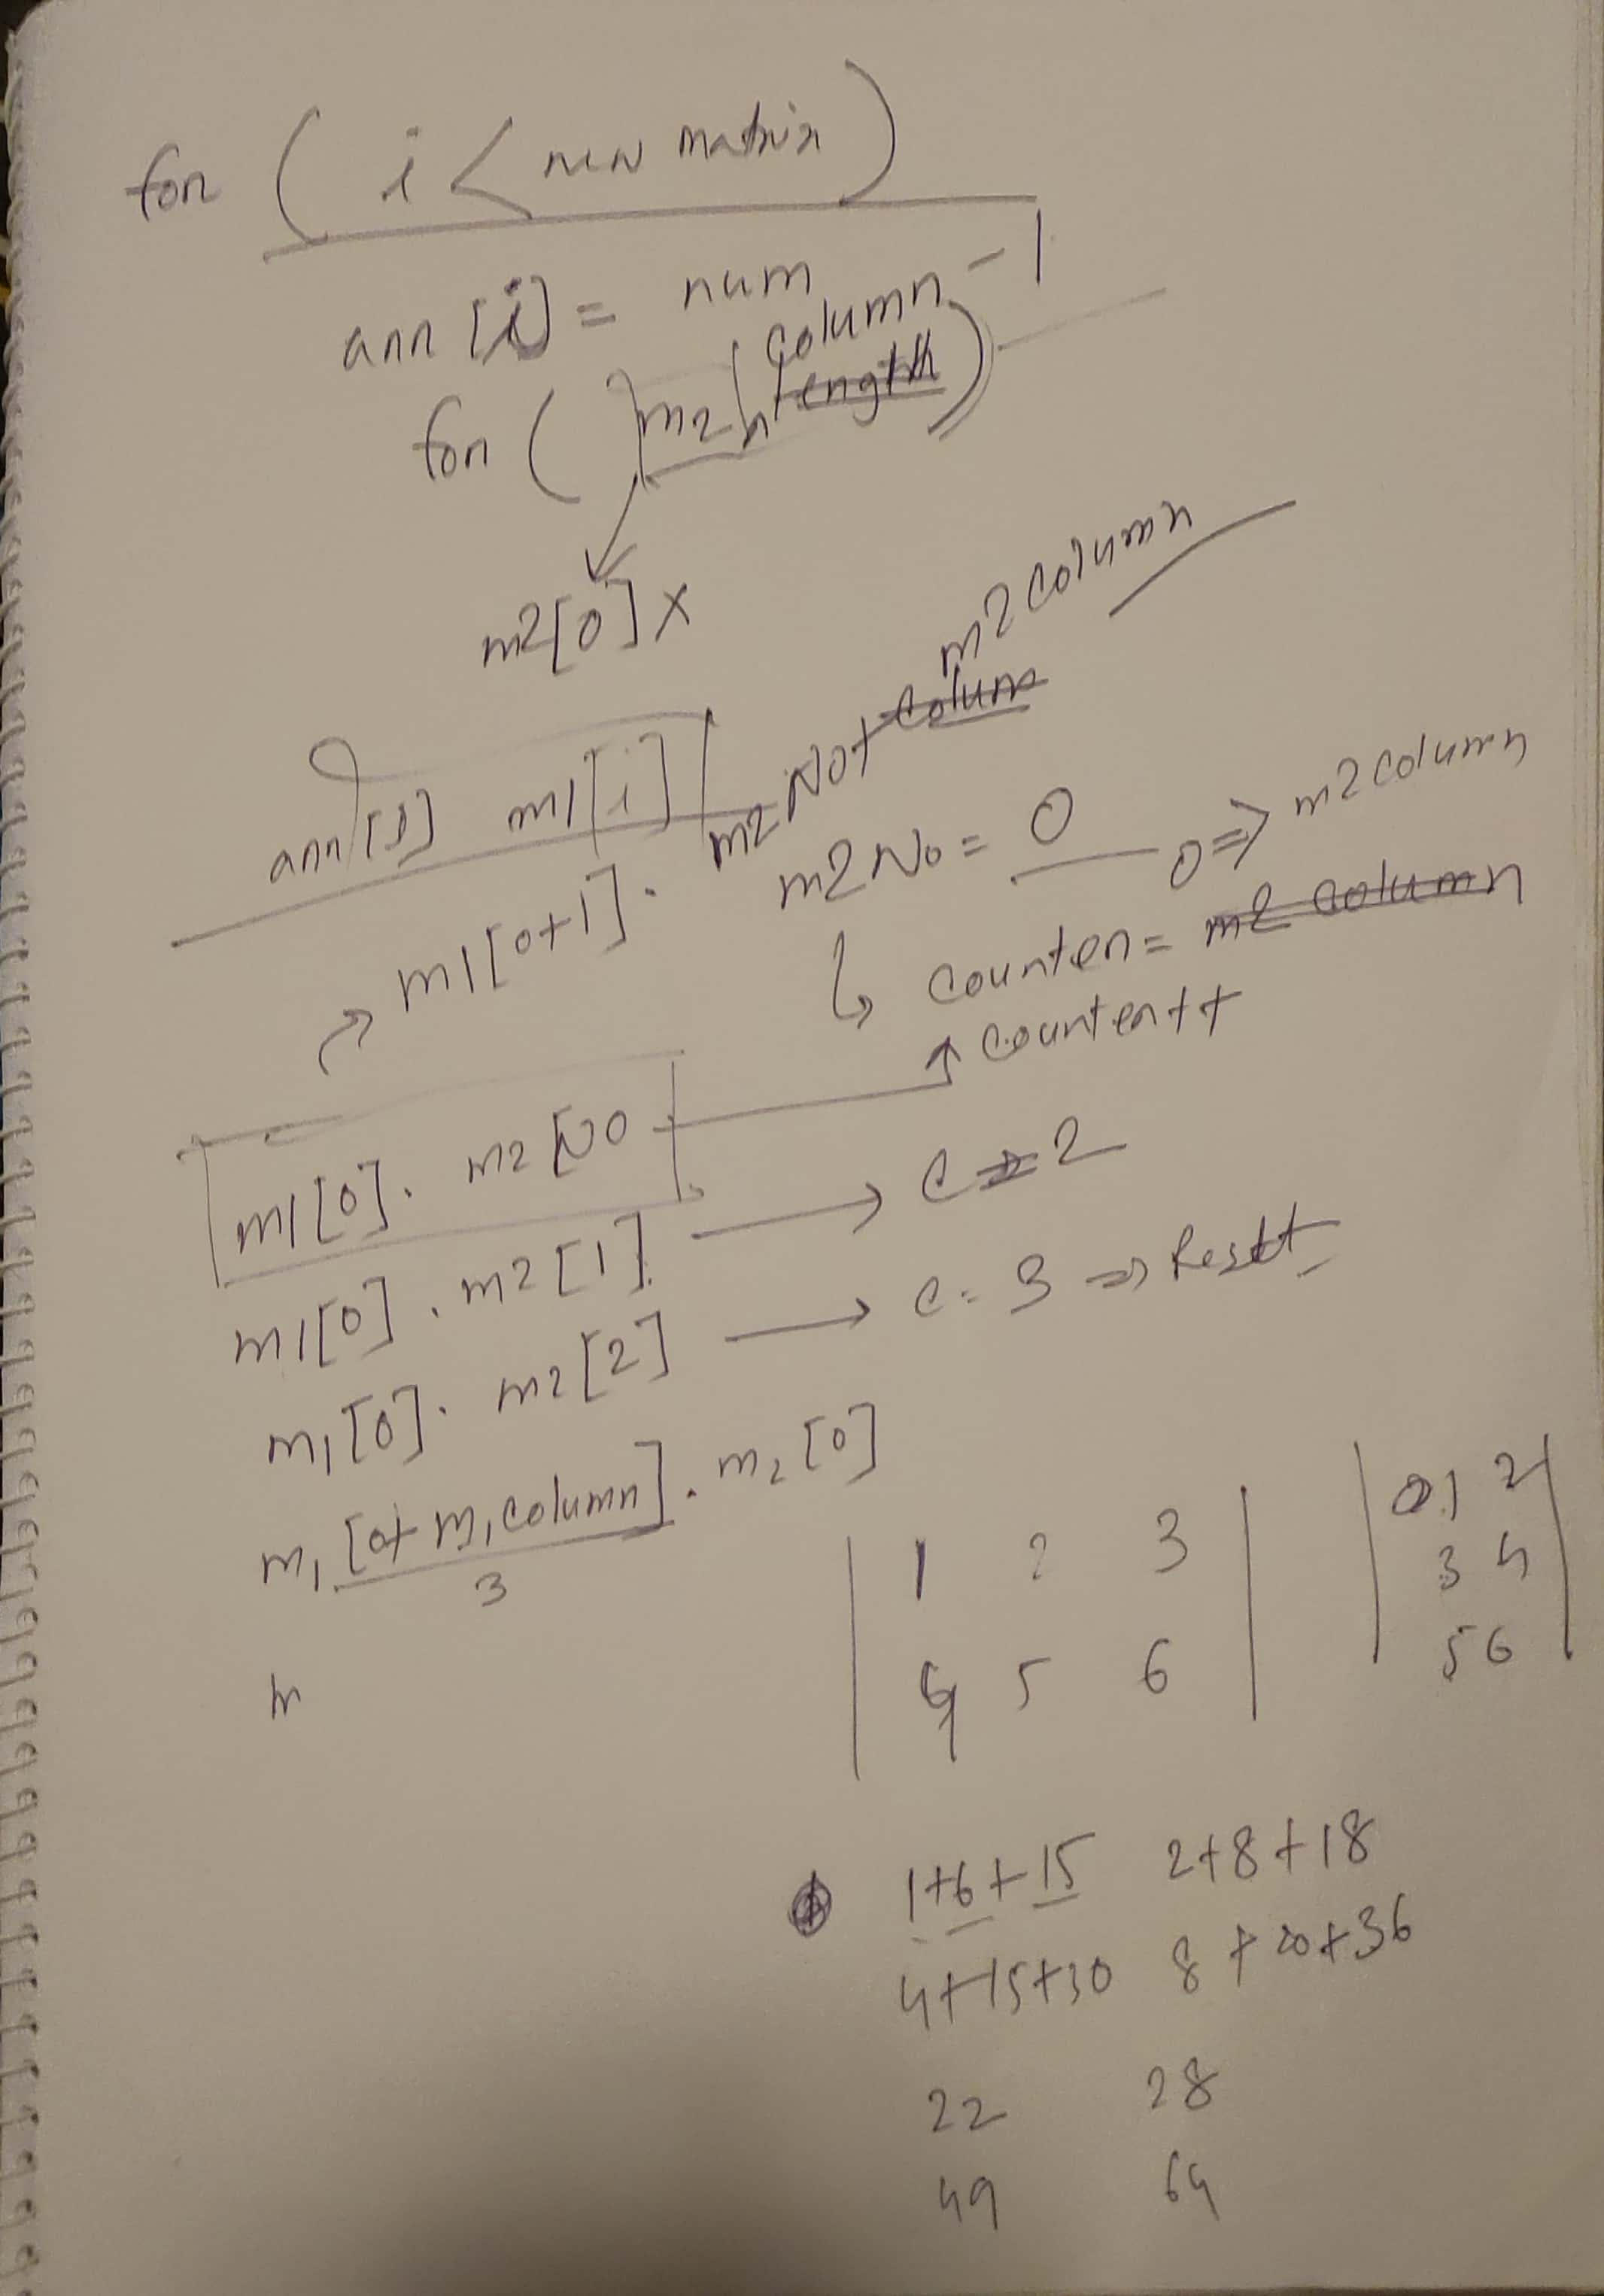 for ( i < new matrix )
arr [i] = num
column - 1
for ( m2 length )
m2[0] x
m2 column
arr[i] m1[i]
m2 No + colum
m1[0+1] .
m2 No = 0
0 => m2 column
counter = m2 column
counter++
m1[0] . m2 [No
m1[0] . m2 [1] → c = 2
m1[0] . m2 [2] → c = 3 => Reset
m1 [0 + m1 column] . m2 [0]
3
1 2 3
0 1 2
3 4
4 5 6
5 6
1+6+15 2+8+18
4+15+30 8+20+36
22 28
49 64